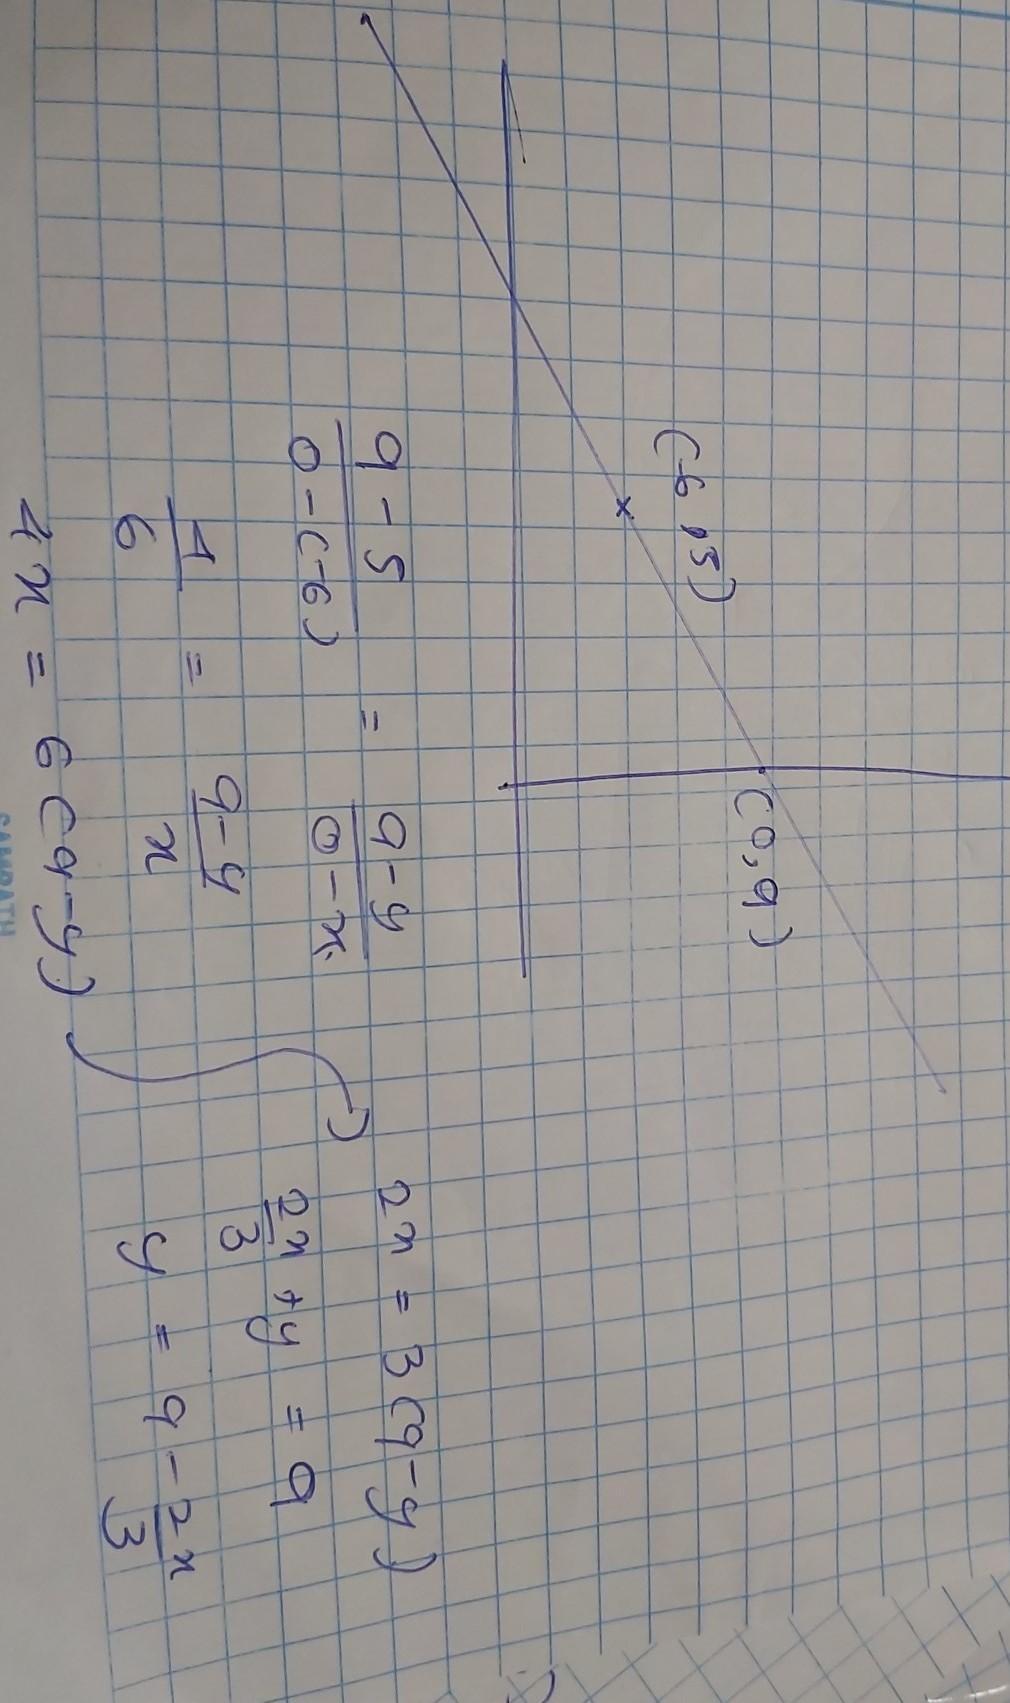 (-6, 5)
(0, 9)
\frac{9-5}{0-(-6)} = \frac{9-y}{0-x}
\frac{4}{6} = \frac{9-y}{x}
4x = 6(9-y)
2x = 3(9-y)
\frac{2x}{3} + y = 9
y = 9 - \frac{2x}{3}